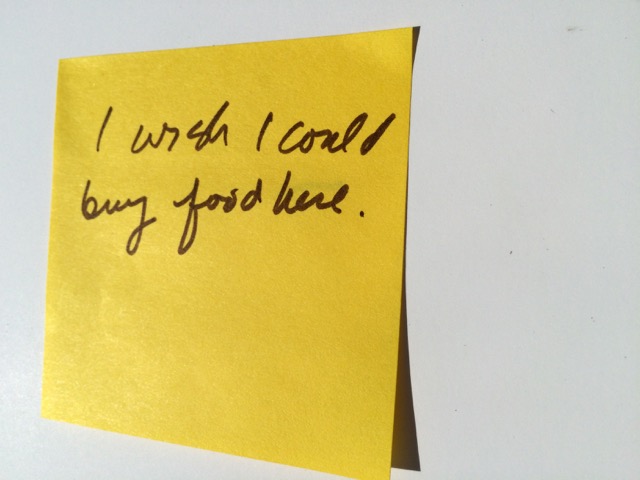 I wish I could
buy food here.